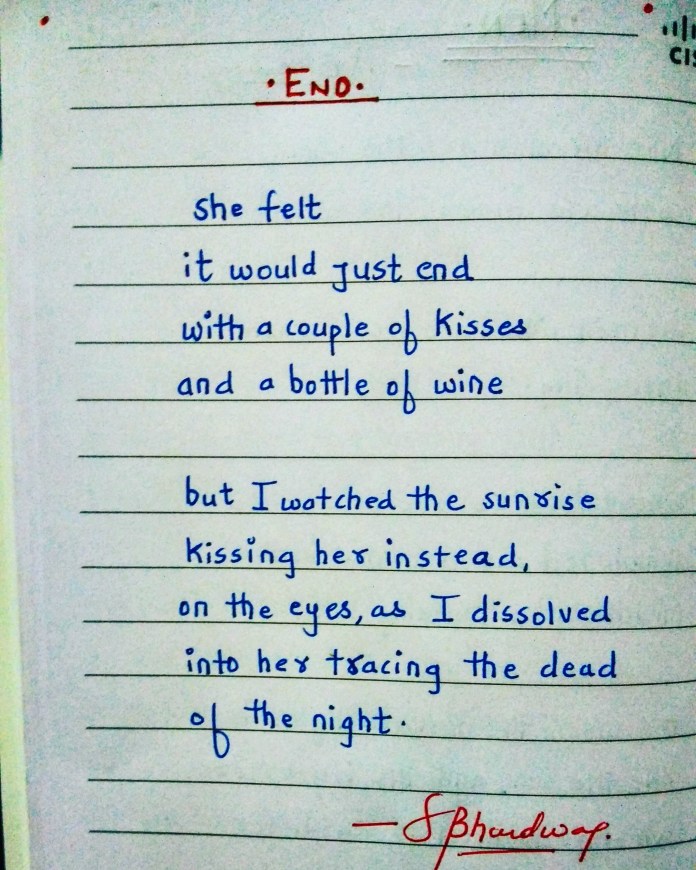 CIS
• END •
she felt
it would just end
with a couple of kisses
and a bottle of wine
but I watched the sunrise
kissing her instead,
on the eyes, as I dissolved
into her tracing the dead
of the night.
— SBhardwaj.